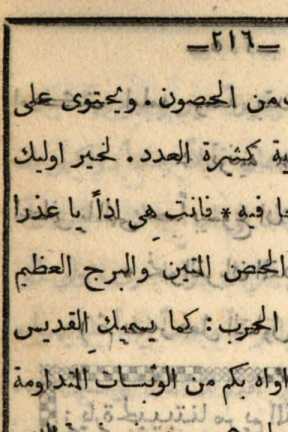 ـ٢١٦ـ
من الحصون . ويحتوى على
كثيرة العدد . لخير اوليك
فيه * فانتِ هى اذاً يا عذرا
الحصن المتين والبرج العظيم
الحرب : كما يسميكِ القديس
اواه بكم من الوثبات المتداومة